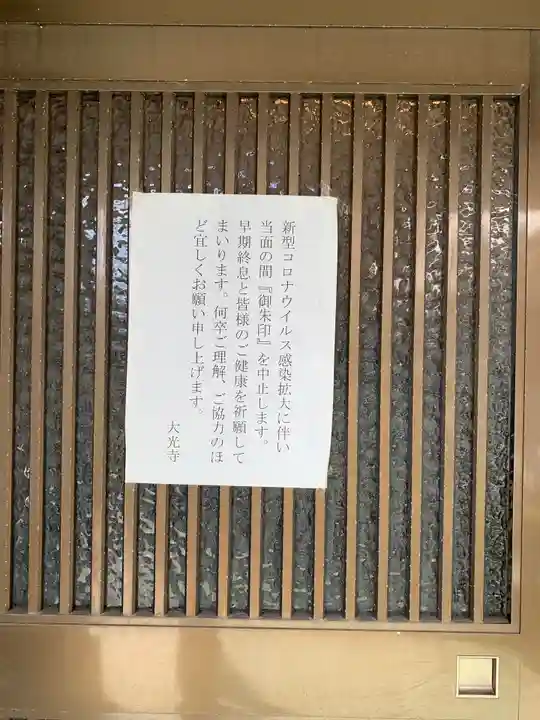 新型コロナウイルス感染拡大に伴い
当面の間『御朱印』を中止します。
早期終息と皆様のご健康を祈願して
まいります。何卒ご理解、ご協力のほ
ど宜しくお願い申し上げます。
大光寺